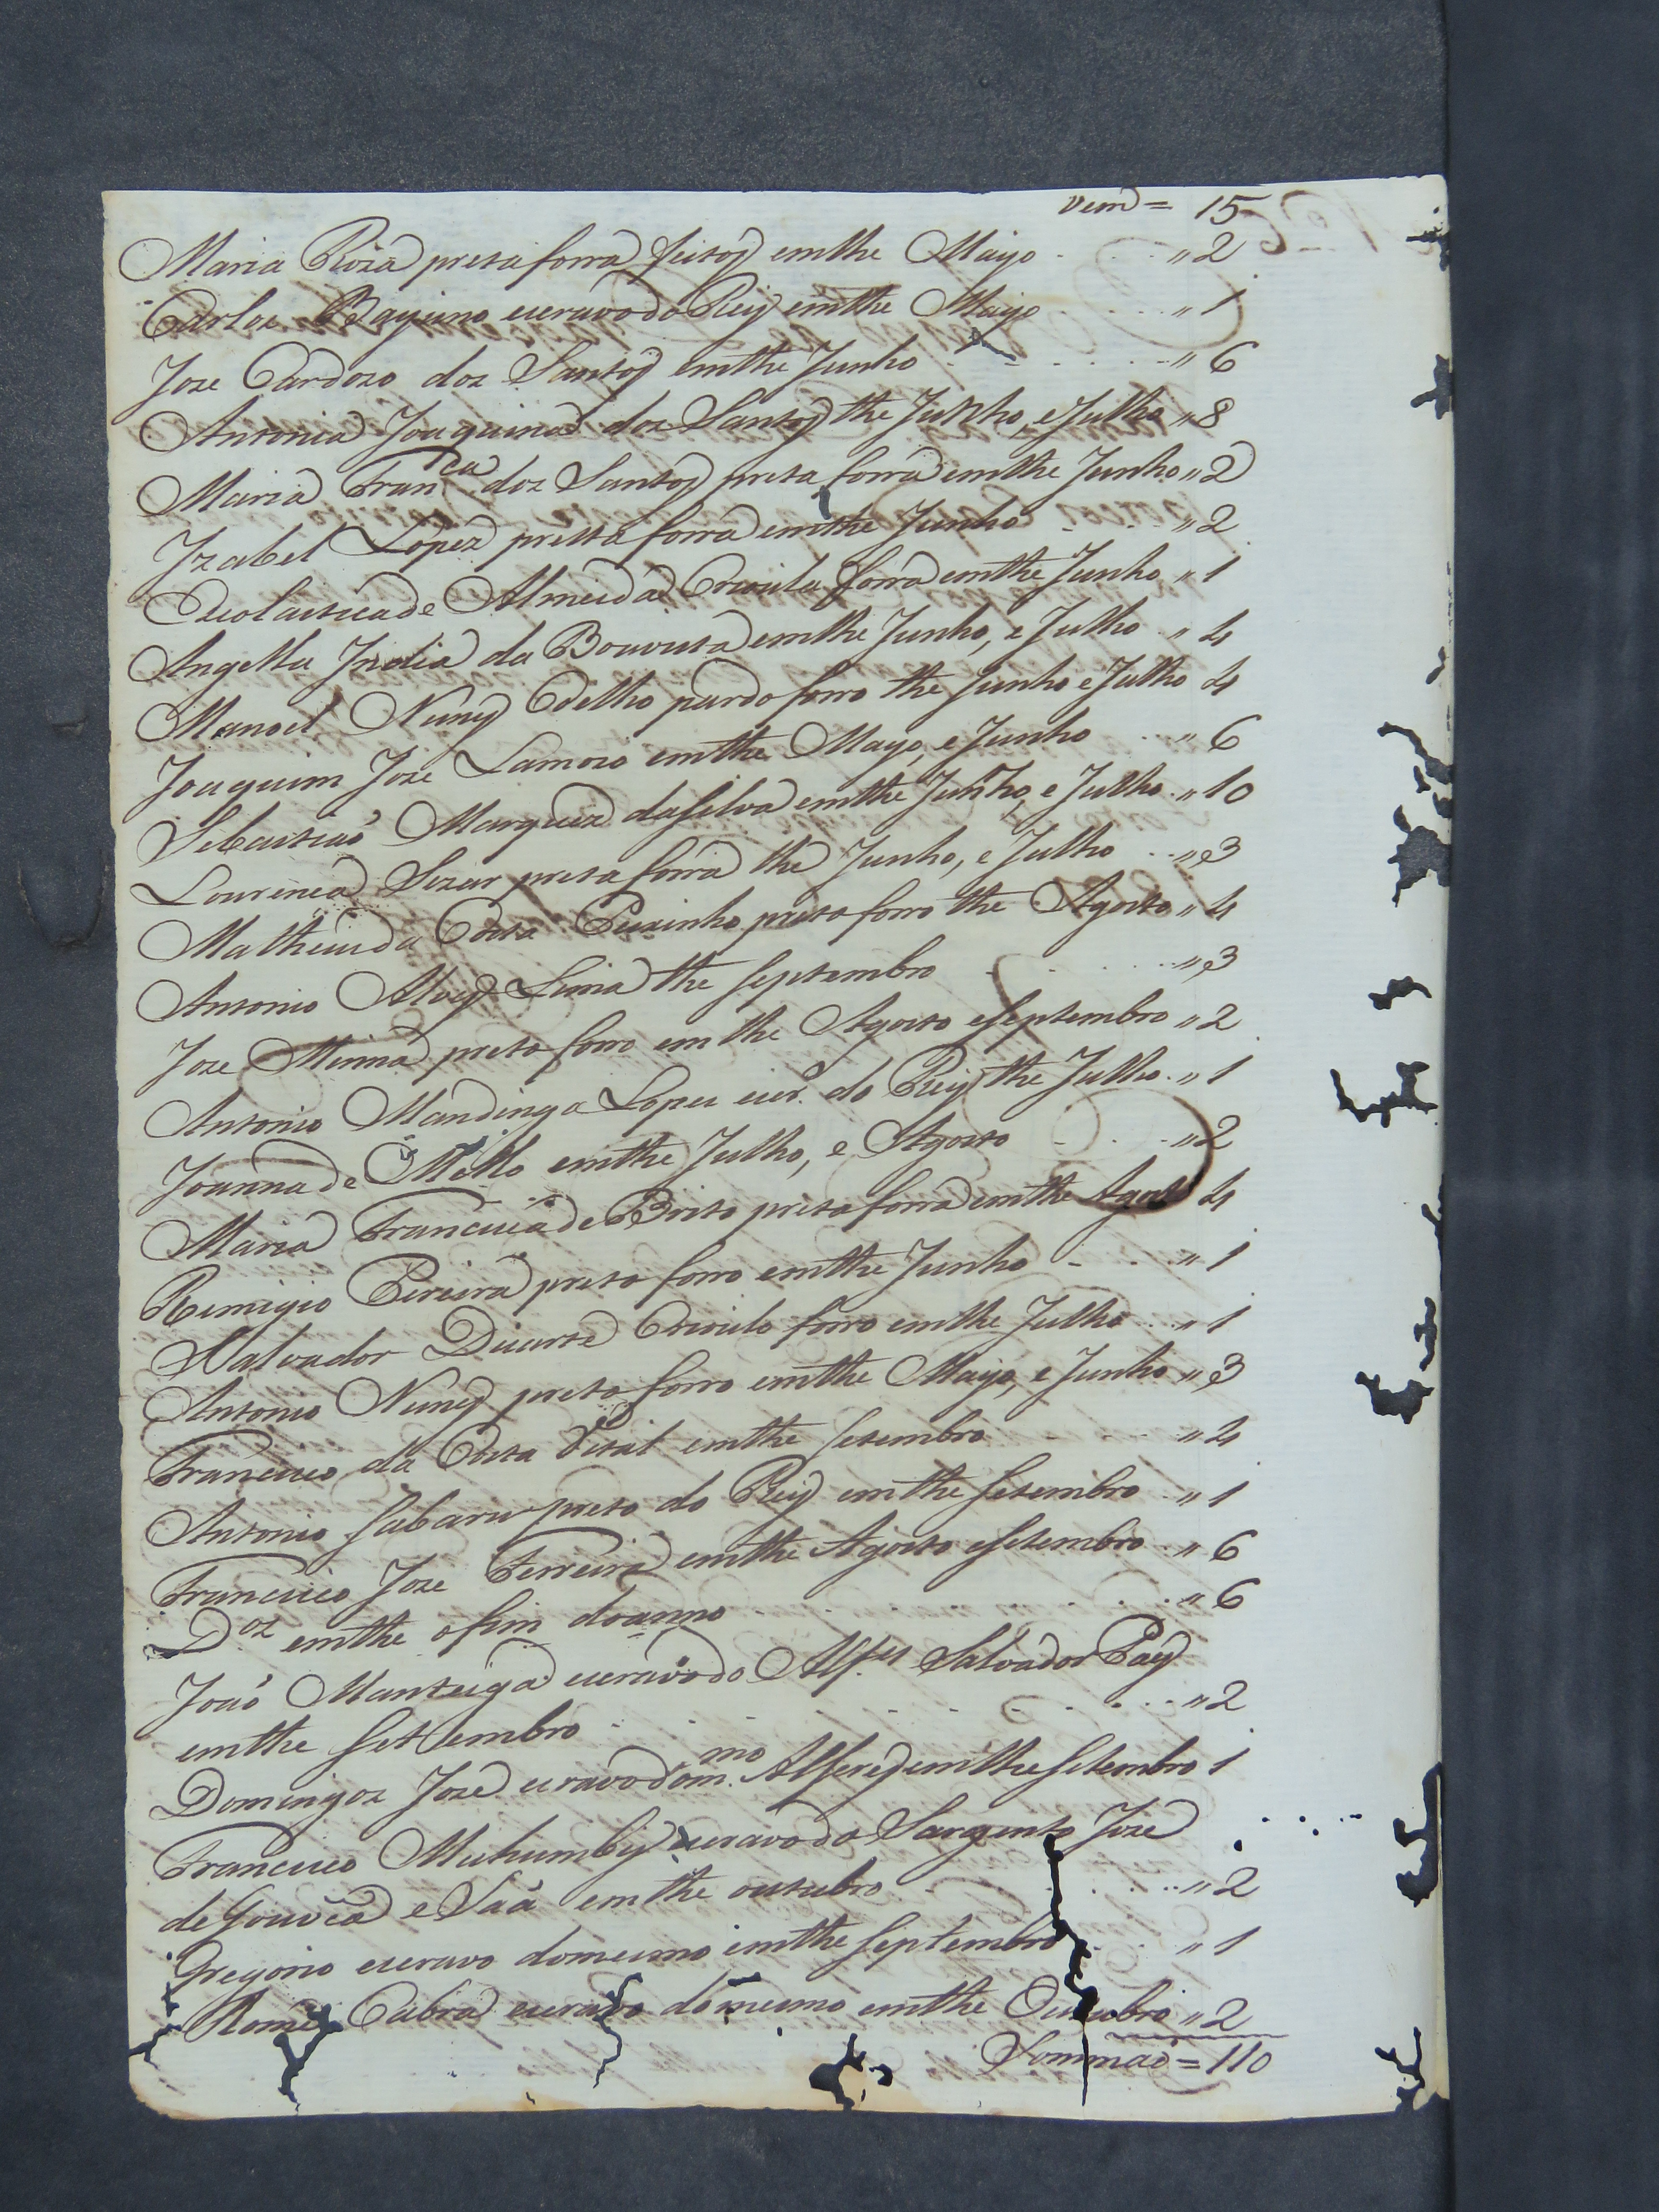 Vem = 15
Maria Roza preta forra feitos emthe Mayo „ 2
Carlos Bayano escravo do Rey emthe Mayo „ 1
Joze Cardozo dos Santos emthe Junho „ 6
Antonia Joaquina dos Santos the Junho, e Julho „ 8
Maria Franca dos Santos preta forra emthe Junho „ 2
Izabel Lopez pretta forra emthe Junho „ 2
Escolastica de Almeida Crioula forra emthe Junho „ 1
Angella India da Boavista emthe Junho, e Julho „ 4
Manoel Nunes Coelho pardo forro the Junho e Julho 4
Joaquim Joze Lamoso emthe Mayo, e Junho „ 6
Sebastiaõ Marques da Silva emthe Junho, e Julho „ 10
Lourença Sezar preta forra the Junho, e Julho „ 3
Matheus da Costa preto forro the Agosto „ 4
Antonio Alves Lima the Septembro „ 3
Joze Minna preto forro emthe Agosto e Septembro „ 2
Antonio Mandinga Lopes escr.º do Rey the Julho „ 1
Joanna de Mello emthe Julho, e Agosto „ 2
Maria Francisca de Brito preta forra emthe Agosto 4
Remigio Pereira preto forro emthe Junho „ 1
Salvador Duarte Crioulo forro emthe Julho „ 1
Antonio Nunes preto forro emthe Mayo, e Junho „ 3
Francisco da Costa Vital emthe Setembro „ 4
Antonio Sabaru preto do Rey emthe Setembro „ 1
Francisco Joze Ferreira emthe Agosto e Setembro „ 6
D.os emthe o fim do anno „ 6
Joaõ Manteiga escravo do Alf.es Salvador Pays
emthe Settembro „ 2
Domingos Joze escravo do m.mo Alferes emthe Setembro 1
Francisco Muhumby escravo do Sargento Joze
de Gouvea e Saá emthe outubro „ 2
Gregorio escravo do mesmo emthe Septembro „ 1
Cabra escravo do mesmo emthe Outubro „ 2
Sommaõ = 110